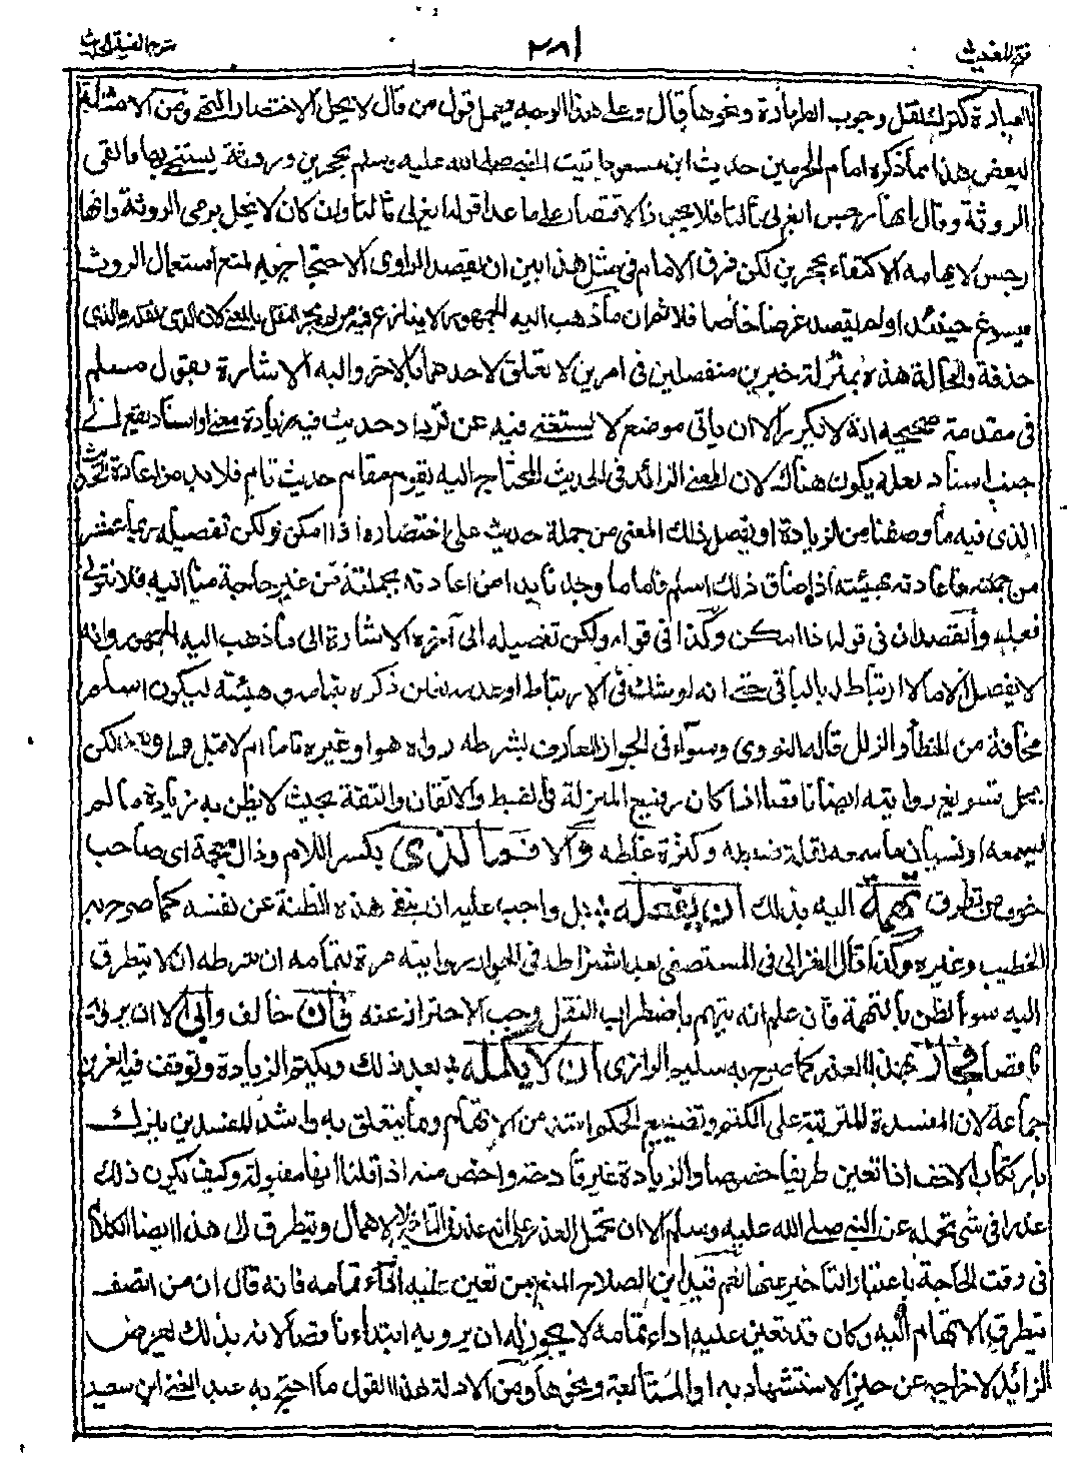 فتح المغيث
٢٨١
شرح الفية الحديث
العبادة كترك نقل وجوب الطهارة ونحوها قال وعلى هذا الوجه يحمل قول من قال لا يحل الاختصار انتهى ومن الامثلة
لبعض هذا ما ذكره امام الحرمين حديث ابن مسعود اتيت النبي صلى الله عليه وسلم بحجرين وروثة يستنجي بها فالقى
الروثة وقال انها رجس ابغ لي ثالثا فلا يجب ذا الاقتصار على ما عدا قوله ابغ لي ثالثا وان كان لا يخل برمي الروثة وانها
رجس لايهامه الاكتفاء بحجرين لكن فرق الامام في مثل هذا بين ان يقصد الراوي الاحتجاج به لمنع استعمال الروث
فيسوغ حينئذ او لم يقصد غرضا خاصا فلا ثم ان ما ذهب اليه الجمهور لا ينازع فيه من لم يجز النقل بالمعنى لان الذي نقله والذي
حذفه والحالة هذه بمنزلة خبرين منفصلين في امرين لا تعلق لاحدهما بالاخر واليه الاشارة بقول مسلم
في مقدمة صحيحه انه لا يكرر الا ان ياتي موضع لا يستغنى فيه عن ترداد حديث فيه زيادة معنى او اسناد يقع الى
جنب اسناد لعلة يكون هناك لان المعنى الزائد في الحديث المحتاج اليه يقوم مقام حديث تام فلا بد من اعادة الحديث
الذي فيه ما وصفنا من الزيادة او نفصل ذلك المعنى من جملة حديث على اختصاره اذا امكن ولكن تفصيله ربما عسر
من جملته فاعادته بهيئته اذا ضاق ذلك اسلم فاما ما وجدنا بدا من اعادته بجملته من غير حاجة منا اليه فلا نتولى
فعله وانقصدان في قوله اذا امكن وكذا في قوله ولكن تفصيله الى آخره الاشارة الى ما ذهب اليه الجمهور وانه
لا يفصل الا ما لا ارتباط له بالباقي حتى انه لو شك في الارتباط او عدمه تعين ذكره بتمامه وهيئته ليكون اسلم
مخافة من الخطأ والزلل قاله النووي وسواء في الجواز للعارف بشرطه رواه هو او غيره تاما ام لا قبل لكن
محل تسويغ روايته ايضا ناقصا اذا كان رفيع المنزلة في الضبط والاتقان والثقة بحيث لا يظن به زيادة ما لم
يسمعه او نسيان ما سمعه لقلة ضبطه وكثرة غلطه والا فما لذي بكسر اللام وذال معجمة اي صاحب
خوف من تطرق تهمة اليه بذلك ان يفعله بل واجب عليه ان ينفي هذه الظنة عن نفسه كما صرح به
الخطيب وغيره وكذا قال الغزالي في المستصفى بعد اشتراطه في الجواز روايته مرة بتمامه ان شرطه ان لا يتطرق
اليه سوء الظن بالتهمة فان علم انه يتهم باضطراب النقل وجب الاحتراز عنه فان خالف وابى الا ان يرويه
ناقصا فجاز لهذا العذر كما صرح به سليم الرازي ان لا يكمله بعد ذلك ويكتم الزيادة وتوقف فيه
جماعة لان المفسدة المترتبة على الكتم وتضييع الحكم اشد من الاتهام وما يتعلق به واشد المفسدين يترك
بارتكاب الاخف اذا تعين طريقا خصوصا والزيادة غير قادحة واخص منه اذا قلنا انها مقبولة وكيف يكون ذلك
عذرا في شئ تحمله عن النبي صلى الله عليه وسلم الا ان يحمل العذر على انه عذر في التاخير لا الاهمال ويتطرق الى هذا ايضا الكلام
في وقت الحاجة باعتبار التاخير عنها نعم قيد ابن الصلاح المنع بمن تعين عليه اداء تمامه فانه قال ان من اتصف
بتطرق الاتهام اليه وكان قد تعين عليه اداء تمامه لا يجوز له ان يرويه ابتداء ناقصا لانه بذلك يعرض
الزائد لاخراجه عن حيز الاستشهاد به او المتابعة ونحوها ومن الادلة لهذا القول ما احتج به عبد الغني ابن سعيد